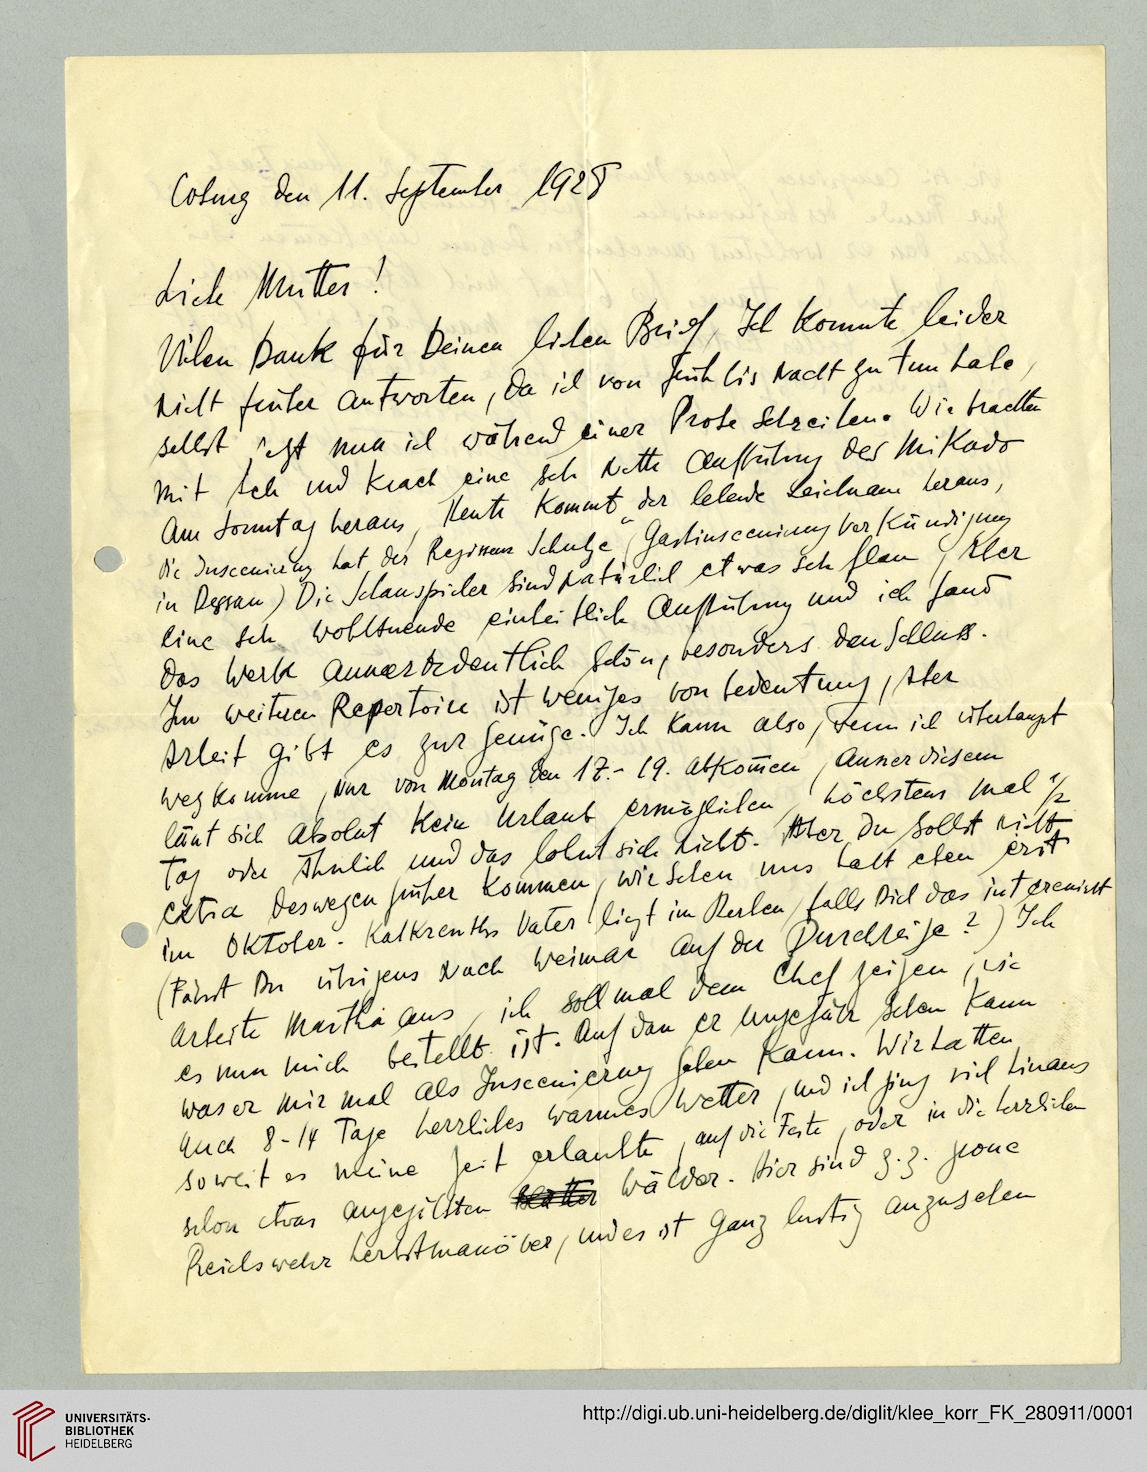 Coburg den 11. September 1928
Liebe Mutter!
Vielen Dank für Deinen lieben Brief, Ich konnte leider
nicht früher antworten, da ich von früh bis Nacht zu tun habe,
selbst jetzt muss ich während einer Probe schreiben. Wir brachten
mit Ach und Krach eine sehr nette Aufführung des Mikado
am Sonntag heraus, Heute kommt "der lebende Leichnam heraus,
die Inscenierung hat der Regisseur Schulze (Gastinscenierung
in Dessau) Die Schauspieler sind natürlich etwas sehr flau, Aber
eine sehr wohltuende einheitliche Aufführung und ich fand
das Werk ausserordentlich schön, besonders den Schluss.
Im weiteren Repertoire ist weniges von Bedeutung, Aber
Arbeit gibt es zur Genüge. Ich kann also, wenn ich überhaupt
wegkomme, nur von Montag den 17.- 19. abkom̄en, ausser diesem
lässt sich absolut kein Urlaub ermöglichen, höchstens mal ½
Tag oder ähnlich und das lohnt sich nicht. Aber Du sollst nicht
extra deswegen früher kommen, wir sehen uns halt eben erst
im Oktober. Kalkreuths Vater liegt im Sterben, falls Dich das interessiert
(Fährst Du übrigens nach Weimar auf der Durchreise?) Ich
arbeite Martha aus, ich soll mal dem Chef zeigen, wie
es um mich bestellt ist. Auf dass er ungefähr sehen kann
was er mir mal als Inscenierung geben kann. Wir hatten
auch 8-14 Tage herrliches warmes Wetter, und ich ging viel hinaus
soweit es meine Zeit erlaubte, auf die Feste, oder in die herrlichen
schon etwas angegilbten Wälder. Hier sind z.Z. grosse
Reichswehr Herbstmanöver, und es ist ganz lustig anzusehen
UNIVERSITÄTS-
BIBLIOTHEK
HEIDELBERG
http://digi.ub.uni-heidelberg.de/diglit/klee_korr_FK_280911/0001